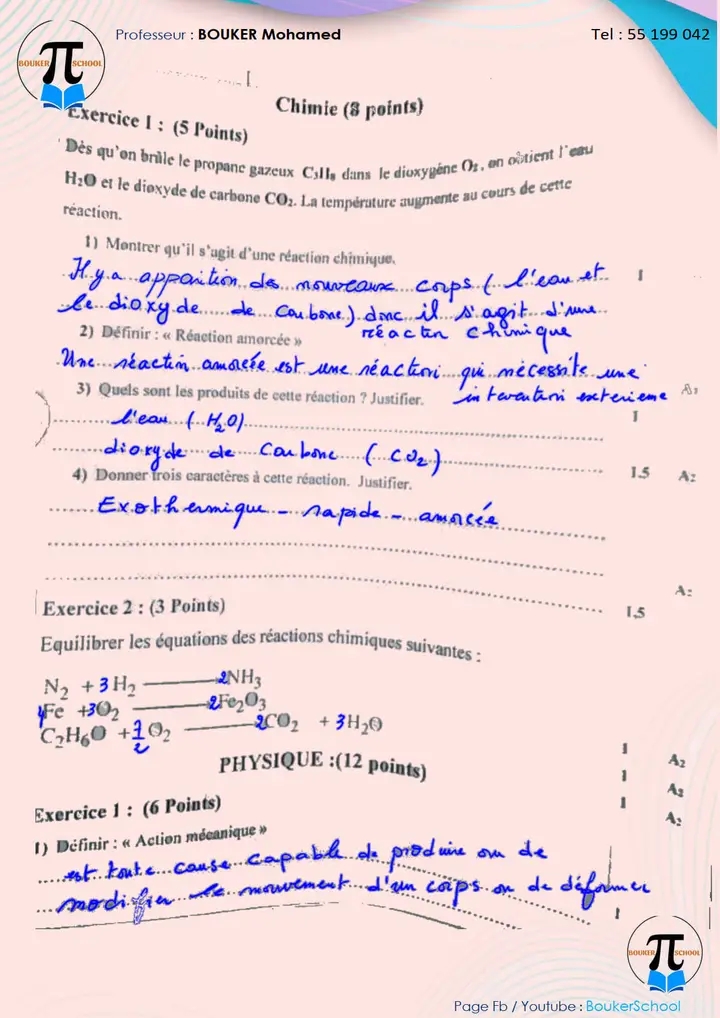 Professeur : BOUKER Mohamed
Tel : 55 199 042
BOUKER π SCHOOL
Chimie (8 points)
Exercice 1 : (5 Points)
Dès qu'on brûle le propane gazeux C₃H₈ dans le dioxygéne O₂, on obtient l'eau
H₂O et le dioxyde de carbone CO₂. La température augmente au cours de cette
réaction.
1) Montrer qu'il s'agit d'une réaction chimique.
Il y a apparition des nouveaux corps ( l'eau et 1
le dioxyde de Carbone) donc il s'agit d'une
réaction chimique
2) Définir : « Réaction amorcée »
Une réaction amorcée est une réaction qui nécessite une
intervention exterieme A₁
3) Quels sont les produits de cette réaction ? Justifier.
l'eau ( H₂O) 1
dioxyde de Carbone ( CO₂)
1.5 A₂
4) Donner trois caractères à cette réaction. Justifier.
Exothermique - rapide - amorcée
A₂
Exercice 2 : (3 Points)
1,5
Equilibrer les équations des réactions chimiques suivantes :
N₂ + 3 H₂ → 2NH₃
4Fe + 3O₂ → 2Fe₂O₃
C₂H₆O + 7/2 O₂ → 2CO₂ + 3H₂O
PHYSIQUE :(12 points)
1 A₂
1 A₂
1 A₂
Exercice 1 : (6 Points)
1) Définir : « Action mécanique »
est toute cause capable de produire ou de
modifier le mouvement d'un corps ou de déformer
1
BOUKER π SCHOOL
Page Fb / Youtube : BoukerSchool